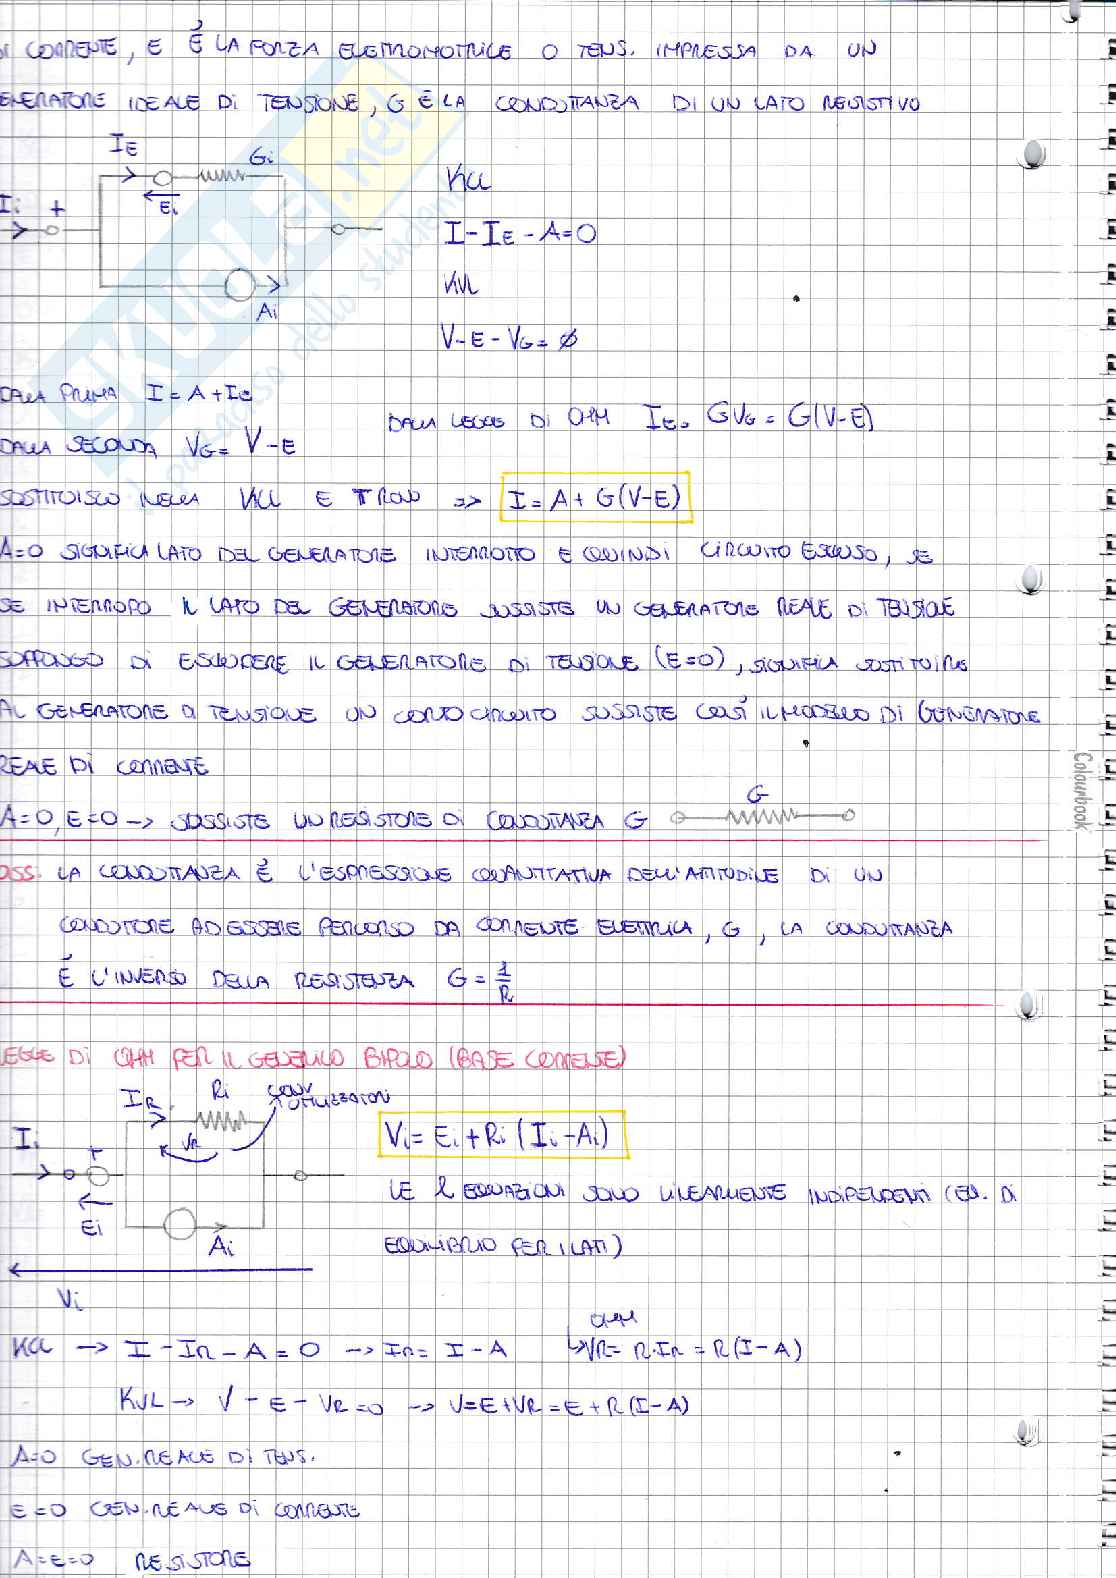 DI CORRENTE, E È LA FORZA ELETTROMOTRICE O TENS. IMPRESSA DA UN
GENERATORE IDEALE DI TENSIONE, G È LA CONDUTTANZA DI UN LATO RESISTIVO
IE
Gi
Ii
+
Ei
Ai
KCL
I-IE-A=0
KVL
V-E-VG=∅
DALLA PRIMA I=A+IE
DALLA LEGGE DI OHM IE= GVG = G(V-E)
DALLA SECONDA VG= V-E
SOSTITUISCO NELLA KCL E TROVO => I=A+G(V-E)
A=0 SIGNIFICA LATO DEL GENERATORE INTERROTTO E QUINDI CIRCUITO ESCLUSO, SE
SE INTERROPO IL LATO DEL GENERATORE SUSSISTE UN GENERATORE REALE DI TENSIONE
SUPPONGO DI ESCLUDERE IL GENERATORE DI TENSIONE (E=0), SIGNIFICA SOSTITUIRE
AL GENERATORE DI TENSIONE UN CORTO CIRCUITO SUSSISTE COSÌ IL MODELLO DI GENERATORE
REALE DI CORRENTE
A=0, E=0 -> SUSSISTE UN RESISTORE DI CONDUTTANZA G
G
OSS. LA CONDUTTANZA È L'ESPRESSIONE QUANTITATIVA DELL'ATTITUDINE DI UN
CONDUTTORE AD ESSERE PERCORSO DA CORRENTE ELETTRICA, G, LA CONDUTTANZA
È L'INVERSO DELLA RESISTENZA G=1/R
LEGGE DI OHM PER IL GENERICO BIPOLO (BASE CORRENTE)
IR
Ri
CONV
UTILIZZATORI
VR
Ii
+
Ei
Ai
Vi
Vi= Ei+Ri(Ii-Ai)
LE 2 EQUAZIONI SONO LINEARMENTE INDIPENDENTI (EQ. DI
EQUILIBRIO PER I LATI)
OHM
KCL -> I-IR-A=0 -> IR= I-A VR= R·IR = R(I-A)
KVL -> V-E-VR=0 -> V=E+VR=E+R(I-A)
A=0 GEN. REALE DI TENS.
E=0 GEN. REALE DI CORRENTE
A=E=0 RESISTORE
SKUOLA.net
il paradiso dello studente
Colourbook